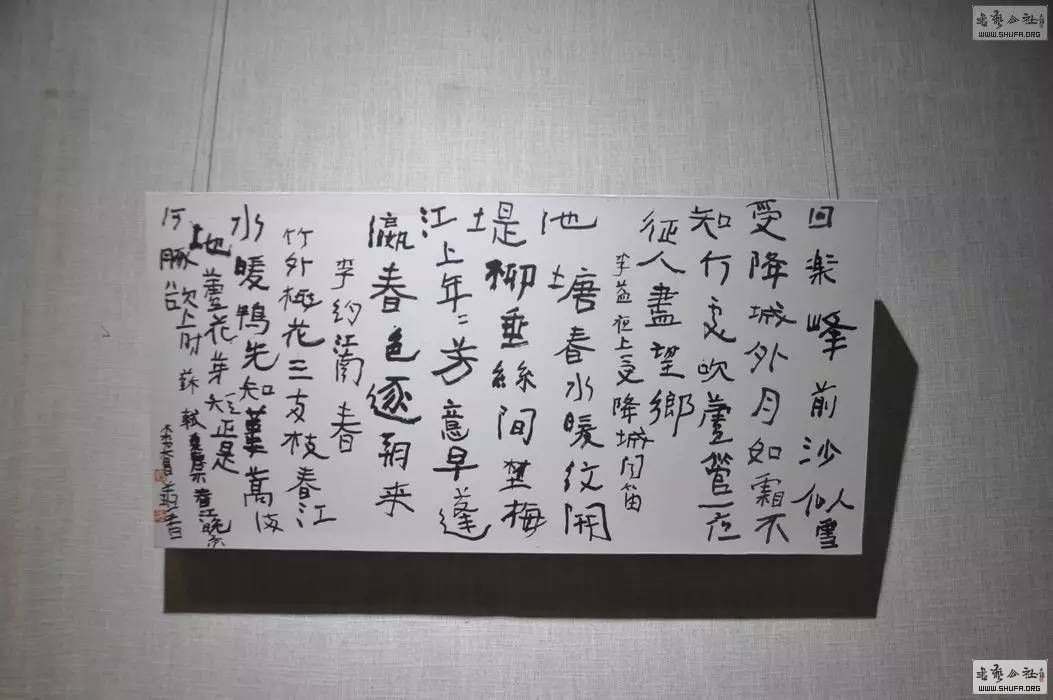 回楽峰前沙似雪
受降城外月如霜不
知何处吹蘆管一夜
征人盡望鄉
李益夜上受降城闻笛
池塘春水暖纹開
堤柳垂絲间埜梅
江上年〻芳意早蓬
瀛春色逐朝来
李约江南春
竹外桃花三两枝春江
水暖鸭先知蒌蒿满
地蘆花芽短正是
河豚欲上时 蘇軾惠崇春江晚景
書藝公社
WWW.SHUFA.ORG
書藝公社
WWW.SHUFA.ORG